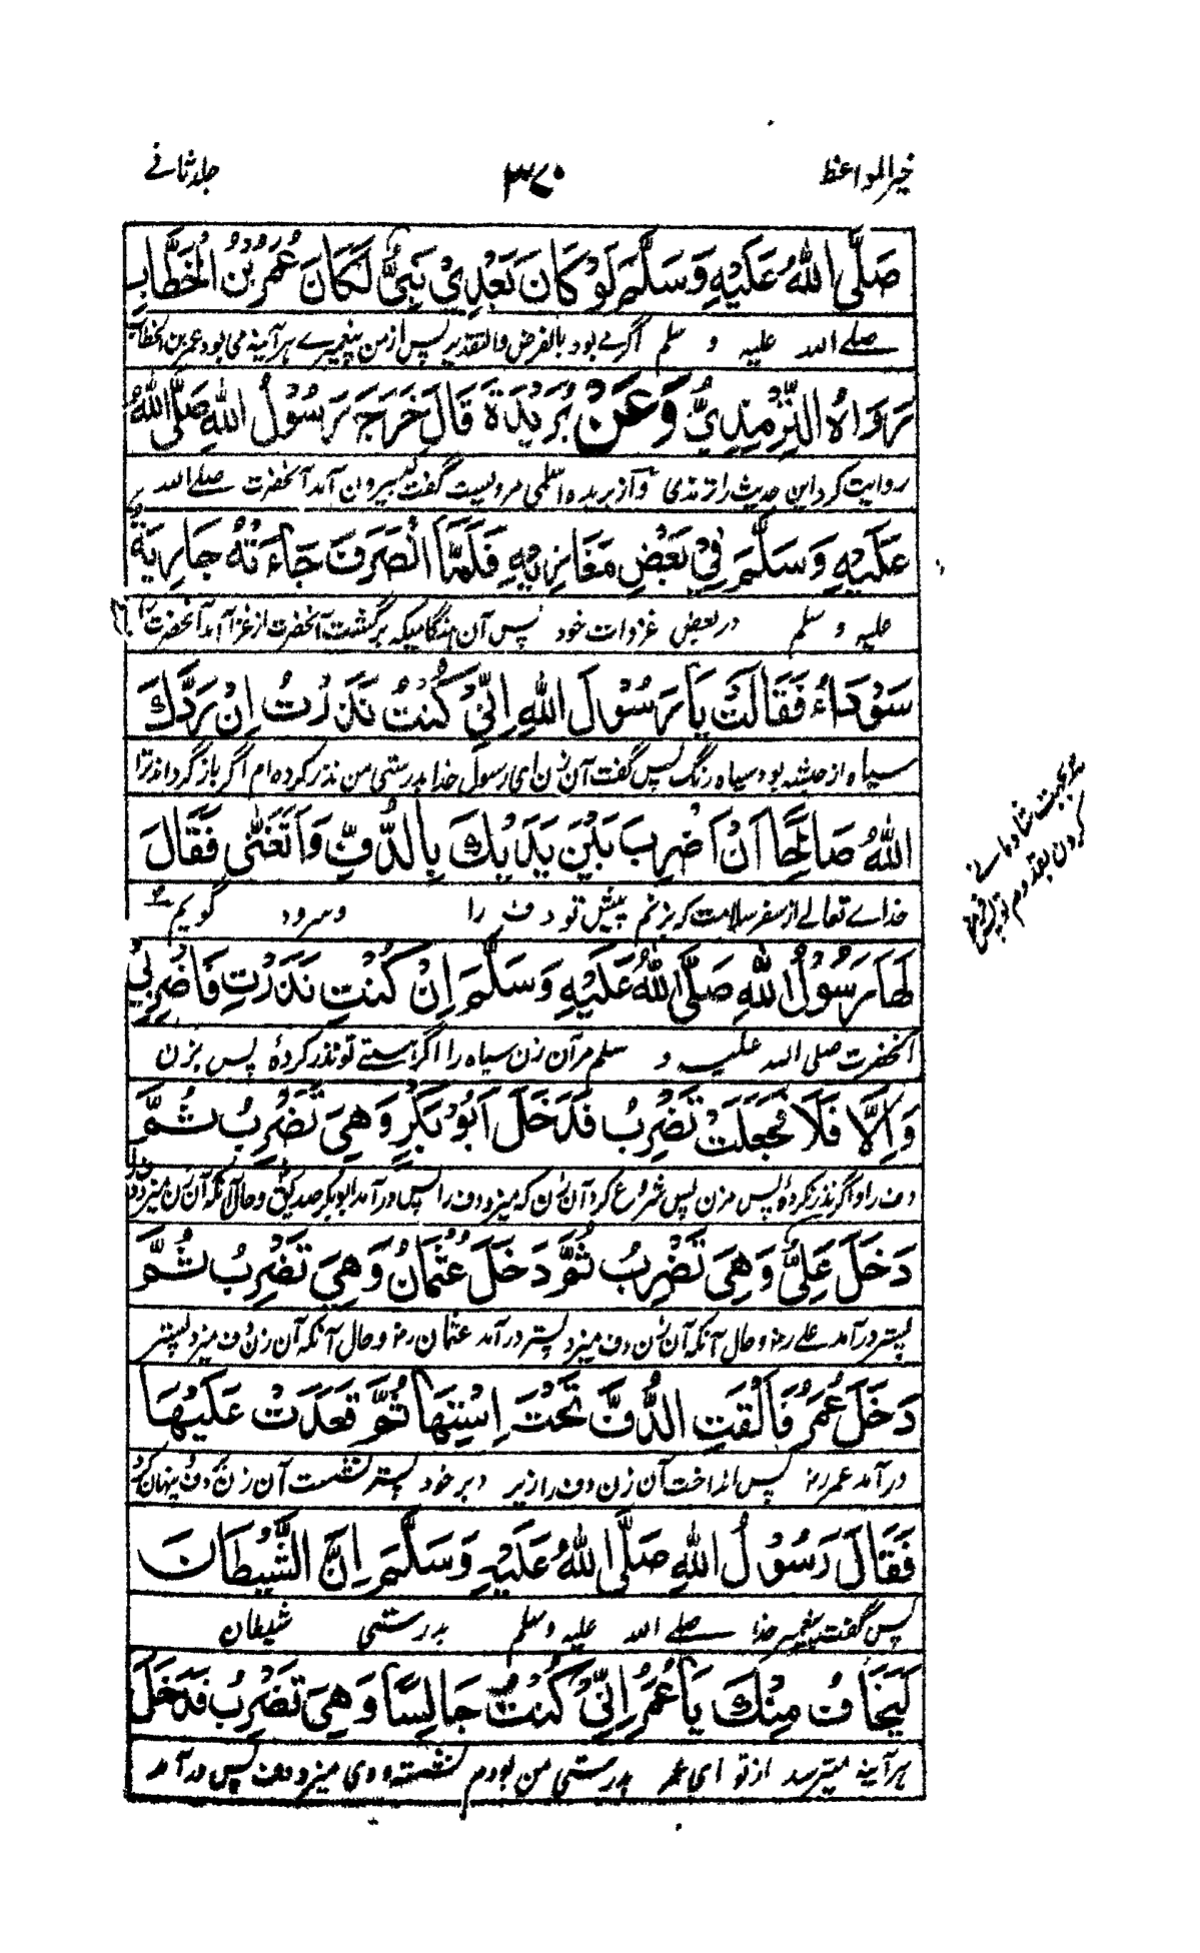 خیر المواعظ ۳۷۰ جلد ثانے
صَلَّى اللهُ عَلَيْهِ وَسَلَّمَ لَوْ كَانَ بَعْدِيْ نَبِيٌّ لَكَانَ عُمَرُ بْنُ الْخَطَّابِ
صلے اللہ علیہ و سلم اگر مے بود بالفرض والتقدیر پس از من پیغمبرے ہر آینہ می بود عمر بن الخطاب
رَوَاهُ التِّرْمِذِيُّ وَعَنْ بُرَيْدَةَ قَالَ خَرَجَ رَسُوْلُ اللهِ صَلَّى اللهُ
روایت کرد این حدیث را ترمذی و از بریدہ اسلمی مرویست گفت بیرون آمد آنحضرت صلے اللہ
عَلَيْهِ وَسَلَّمَ فِيْ بَعْضِ مَغَازِيْهِ فَلَمَّا انْصَرَفَ جَاءَتْهُ جَارِيَةٌ
علیہ و سلم در بعض غزوات خود پس آن ہنگامیکہ برگشت آنحضرت از غزا آمد آنحضرت را
سَوْدَاءُ فَقَالَتْ يَا رَسُوْلَ اللهِ اِنِّيْ كُنْتُ نَذَرْتُ اِنْ رَدَّكَ
سیاہ از حبشہ بود سیاہ رنگ پس گفت آن زن ای رسول خدا بدرستی من نذر کردہ ام اگر باز گرداند ترا
اللهُ صَالِحًا اَنْ اَضْرِبَ بَيْنَ يَدَيْكَ بِالدُّفِّ وَاَتَغَنّٰى فَقَالَ
خداے تعالے از سفر سلامت کہ بزنم پیش تو دف را و سرود گویم
بجہت شادمانے
کردن بقدوم تو پس فرمود
لَهَا رَسُوْلُ اللهِ صَلَّى اللهُ عَلَيْهِ وَسَلَّمَ اِنْ كُنْتِ نَذَرْتِ فَاضْرِبِيْ
آنحضرت صلی اللہ علیہ و سلم مر آن زن سیاہ را اگر ہستے تو نذر کردۂ پس بزن
وَاِلَّا فَلَا فَجَعَلَتْ تَضْرِبُ فَدَخَلَ اَبُوْ بَكْرٍ وَهِيَ تَضْرِبُ ثُمَّ
دف را و اگر نذر نکردۂ پس مزن پس شروع کرد آن زن کہ میزد دف را پس در آمد ابو بکر صدیق و حال آنکہ آن زن میزد
دَخَلَ عَلِيٌّ وَهِيَ تَضْرِبُ ثُمَّ دَخَلَ عُثْمَانُ وَهِيَ تَضْرِبُ ثُمَّ
پستر در آمد علے رض و حال آنکہ آن زن دف میزد پستر در آمد عثمان رض و حال آنکہ آن زن دف میزد پستر
دَخَلَ عُمَرُ فَاَلْقَتِ الدُّفَّ تَحْتَ اِسْتِهَا ثُمَّ قَعَدَتْ عَلَيْهَا
در آمد عمر رض پس انداخت آن زن دف را زیر دبر خود پستر نشست آن زن بر دف پنہان کرد
فَقَالَ رَسُوْلُ اللهِ صَلَّى اللهُ عَلَيْهِ وَسَلَّمَ اِنَّ الشَّيْطَانَ
پس گفت پیغمبر خدا صلے اللہ علیہ و سلم بدرستی شیطان
لَيَخَافُ مِنْكَ يَا عُمَرُ اِنِّيْ كُنْتُ جَالِسًا وَهِيَ تَضْرِبُ فَدَخَلَ
ہر آینہ میترسد از تو ای عمر بدرستی من بودم نشستہ و وی میزد دف پس در آمد